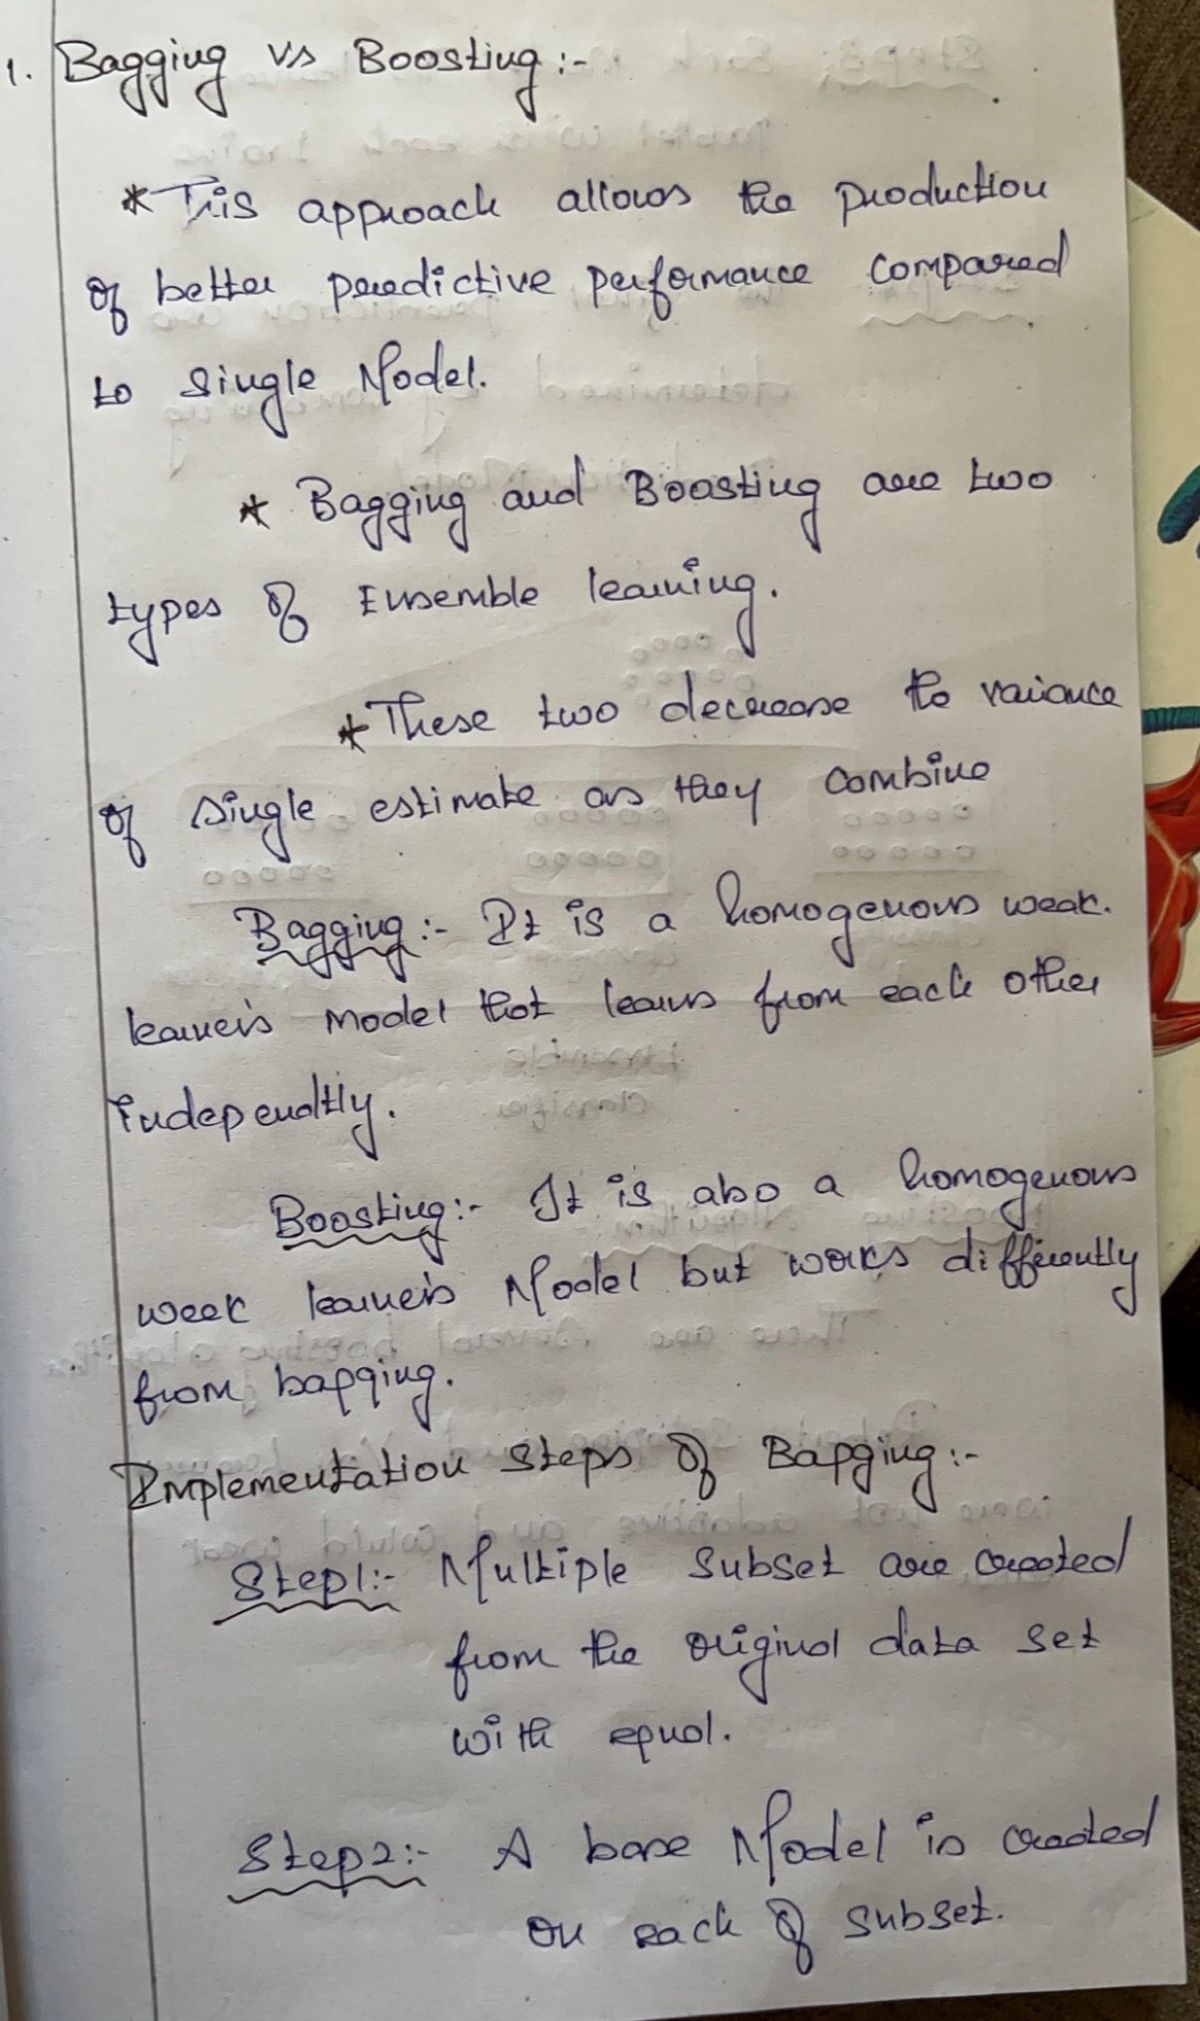 1. Bagging vs Boosting :-
* This approach allows the production
of better predictive performance compared
to single Model.
* Bagging and Boosting are two
types of Ensemble learning.
* These two decrease the variance
of single estimate as they combine
Bagging :- It is a homogenous weak.
learner's model that learns from each other
independtly.
Boosting :- It is also a homogenous
week learner's Model but works differently
from bagging.
Implementation Steps of Bagging :-
Step1:- Multiple Subset are created
from the original data set
with equal.
Step2:- A base Model is created
on each of subset.